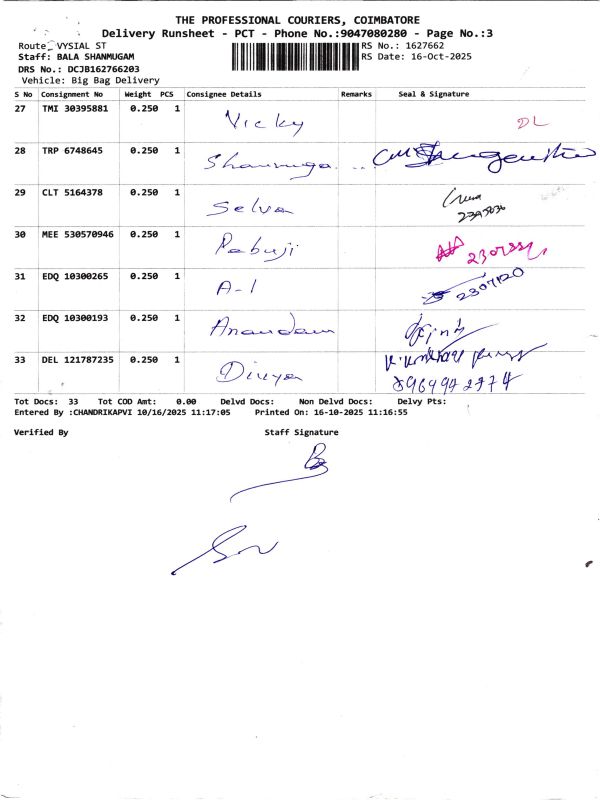 THE PROFESSIONAL COURIERS, COIMBATORE
Delivery Runsheet - PCT - Phone No.:9047080280 - Page No.:3
Route: VYSIAL ST RS No.: 1627662
Staff: BALA SHANMUGAM RS Date: 16-Oct-2025
DRS No.: DCJB162766203
Vehicle: Big Bag Delivery
S No Consignment No Weight PCS Consignee Details Remarks Seal & Signature
27 TMI 30395881 0.250 1 Vicky DL
28 TRP 6748645 0.250 1 Shanmuga...
29 CLT 5164378 0.250 1 Selva
30 MEE 530570946 0.250 1 Pabuji
31 EDQ 10300265 0.250 1 A-1 2307120
32 EDQ 10300193 0.250 1 Anandam
33 DEL 121787235 0.250 1 Divya
Tot Docs: 33 Tot COD Amt: 0.00 Delvd Docs: Non Delvd Docs: Delvy Pts:
Entered By :CHANDRIKAPVI 10/16/2025 11:17:05 Printed On: 16-10-2025 11:16:55
Verified By Staff Signature